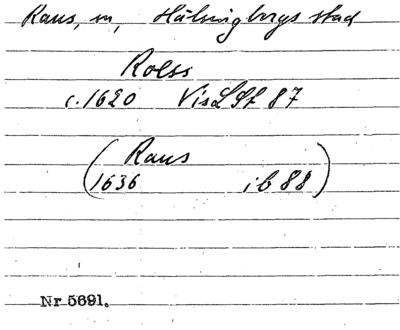 Raus, sn, Hälsingborgs stad
Rolss
c. 1620 VisLSt 87
(Raus
1636 ib 88)
Nr 5691.